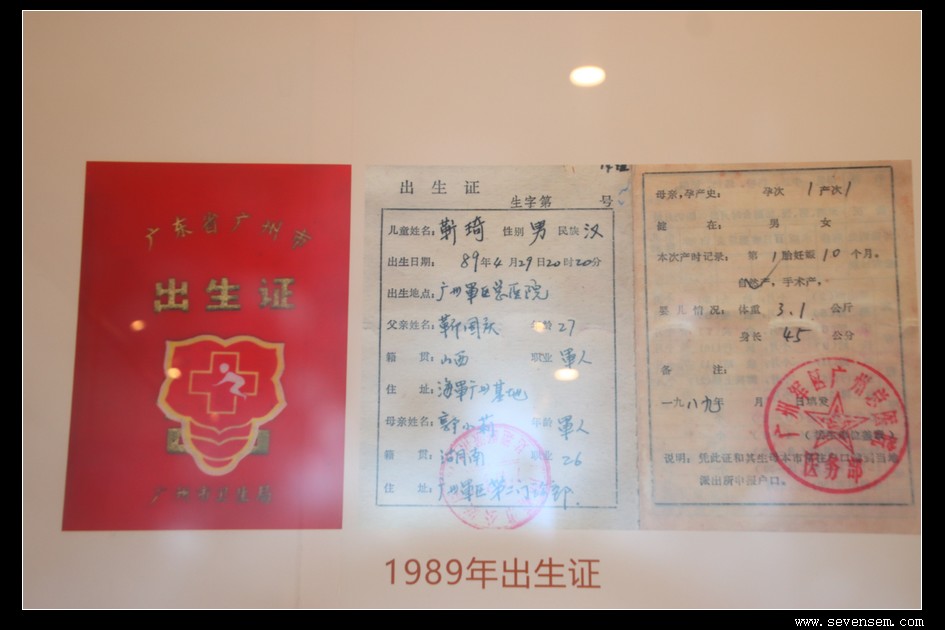 广东省广州市
出生证
广州市卫生局
出生证
生字第 号
儿童姓名: 靳琦 性别 男 民族 汉
出生日期: 89年4月29日20时20分
出生地点: 广州军区总医院
父亲姓名: 靳国庆 年龄 27
籍 贯: 山西 职业 军人
住 址: 海军广州基地
母亲姓名: 小莉 年龄 军人
籍 贯: 河南 职业 26
住 址: 广州军区第二门诊部.
母亲,孕产史: 孕次 1 产次 1
在: 男 女
本次产时记录: 第1胎妊娠10个月。
自然产,手术产,
婴儿情况: 体重 3.1 公斤
身长 45 公分
备 注:
一九八九年 月 日填发
说明: 凭此证和其生母本市
派出所申报户口。
广州军区广州总医院
医务部
1989年出生证
www.sevensem.com